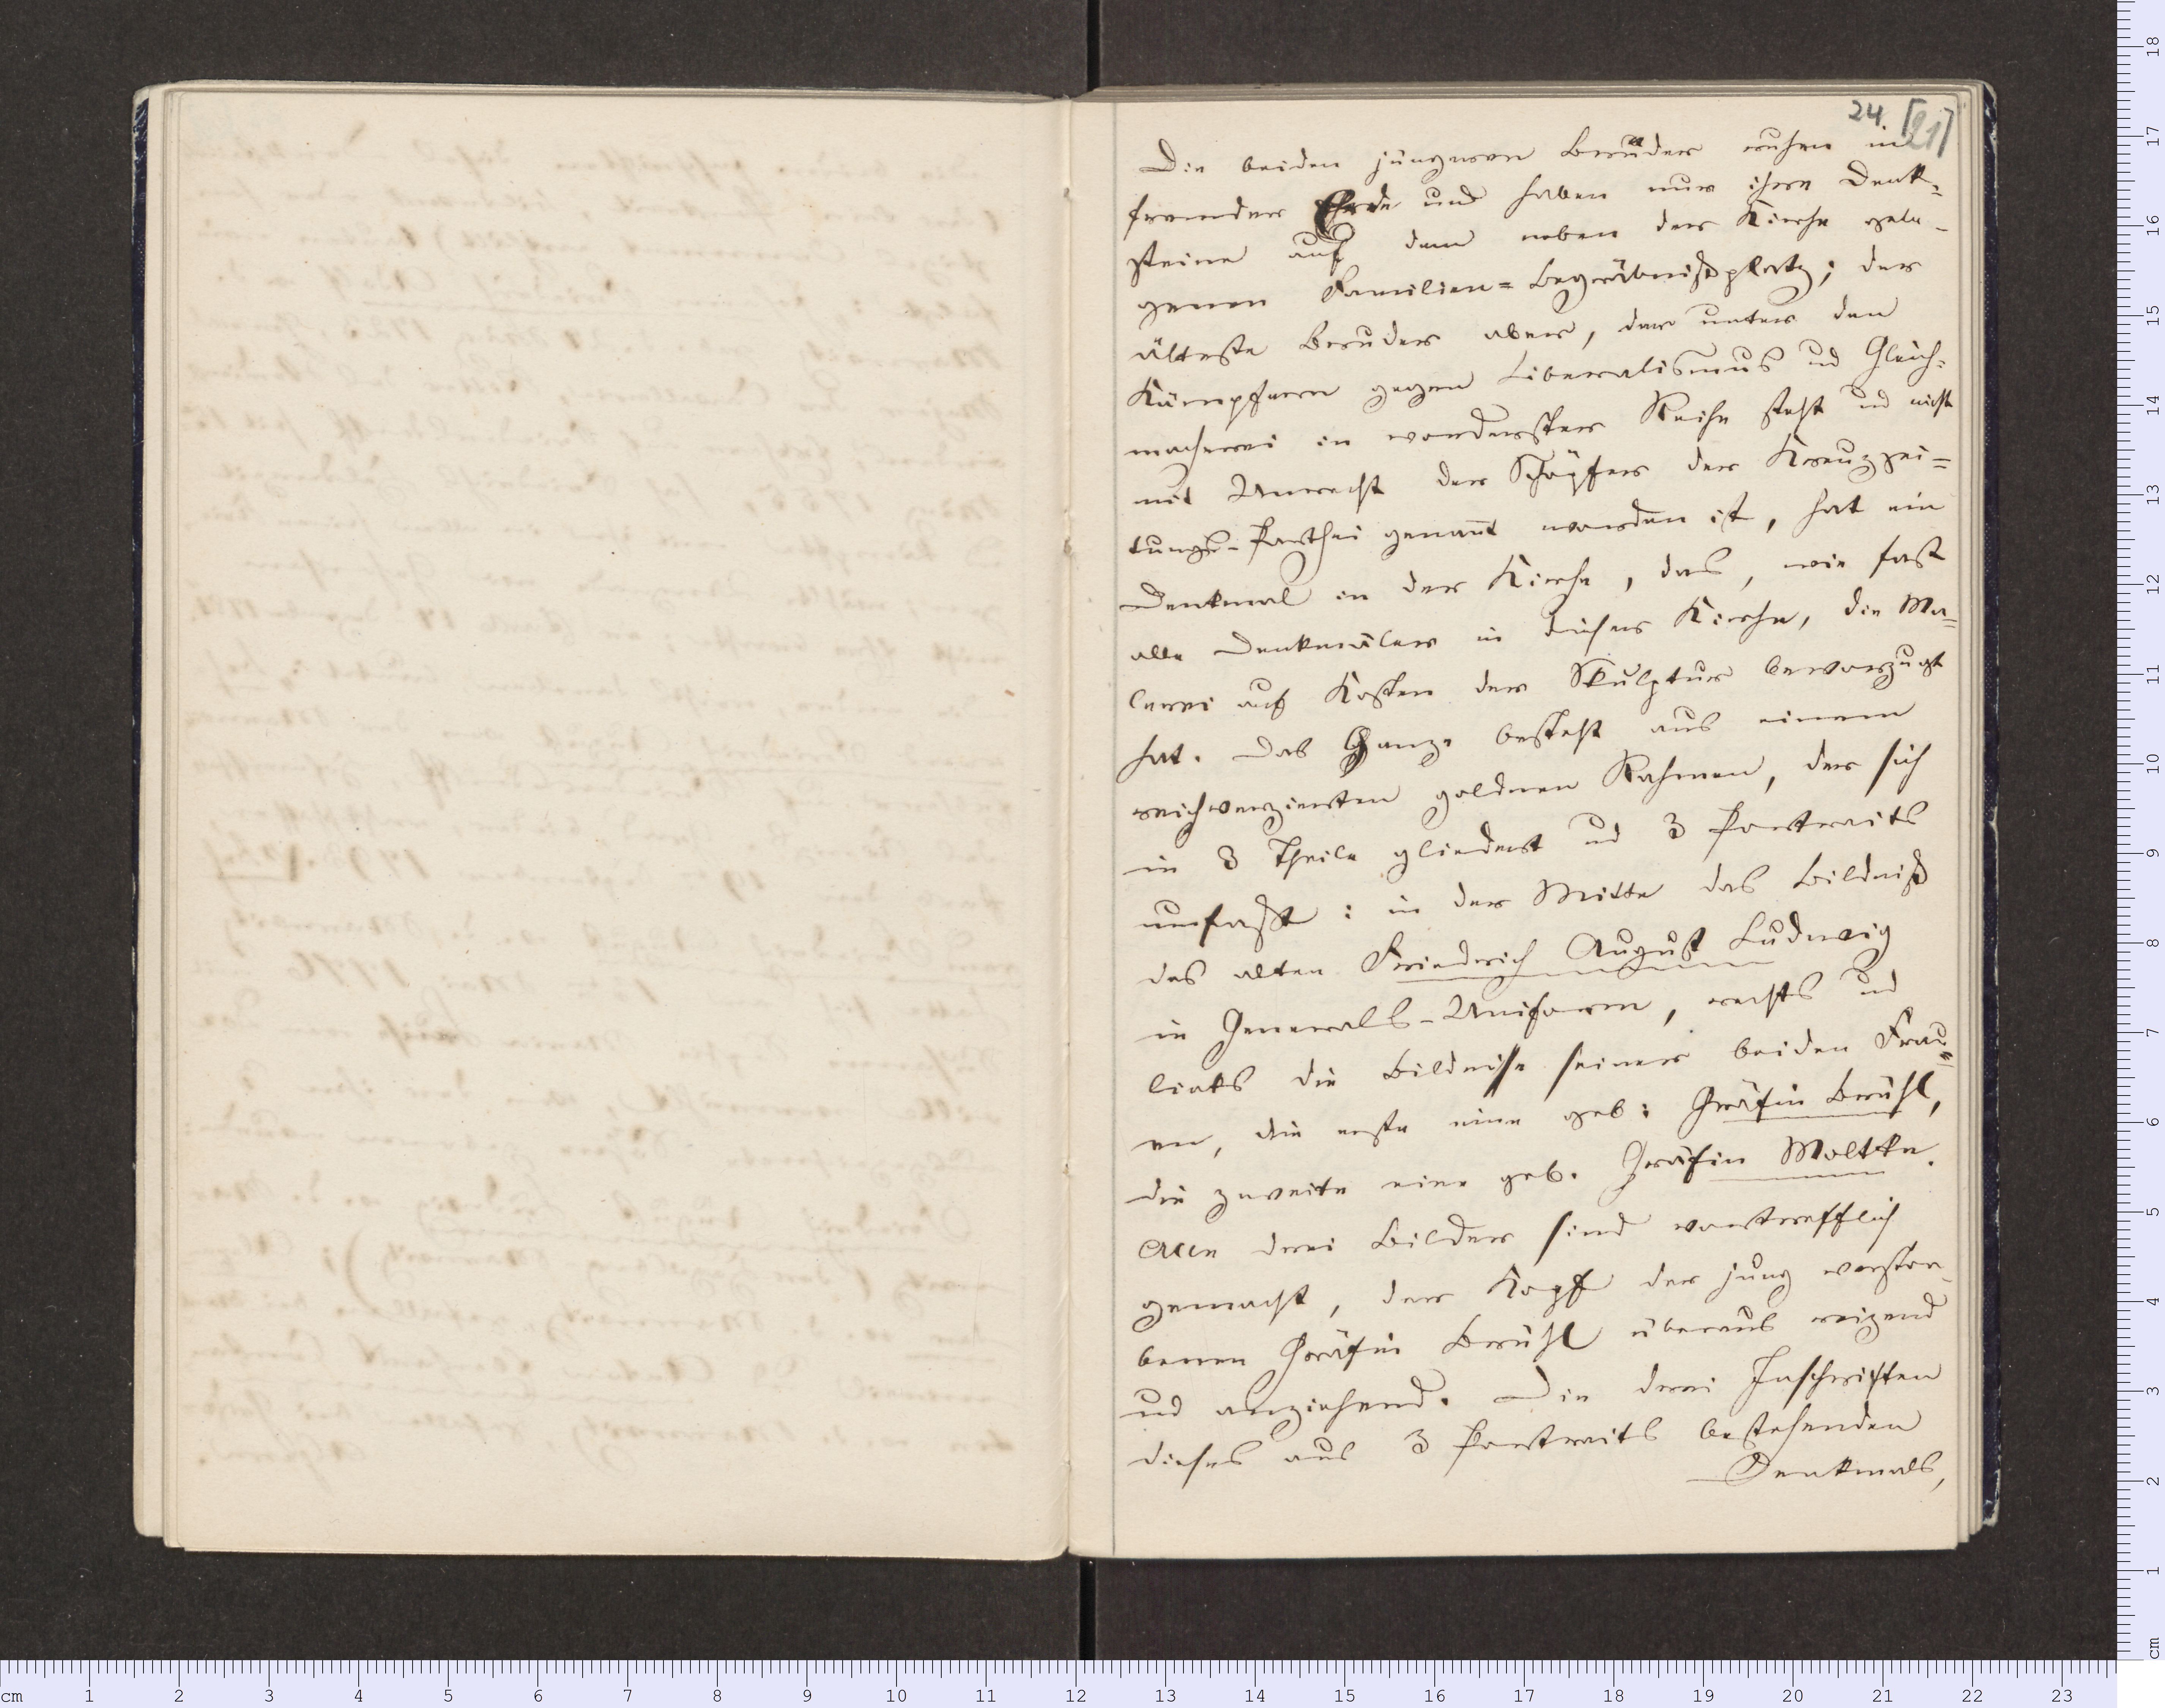 24. [21]
Die beiden jüngeren Brüder ruhen in
fremder Erde und haben nur ihre Denk=
steine auf dem neben der Kirche gele-
genen Familien=Begräbnißplatz; der
älteste Bruder aber, der unter den
Kämpfern gegen Liberalismus und Gleich=
macherei in vorderster Reihe steht und nicht
mit Unrecht der Schöpfer der Kreuzzei=
tungs-Parthei genannt worden ist, hat ein
Denkmal in der Kirche, das, wie fast
alle Denkmäler in dieser Kirche, die Ma=
lerei auf Kosten der Skulptur bevorzugt
hat. Das Ganze besteht aus einem
reichverzierten goldnen Rahmen, der sich
in 3 Theile gliedert und 3 Portraits
umfaßt: in der Mitte das Bildniß
des alten Friedrich August Ludwig
in Generals-Uniform, rechts und
links die Bildnisse seiner beiden Frau=
en, die erste eine geb: Gräfin Brühl,
die zweite eine geb. Gräfin Moltke.
Alle drei Bilder sind vortrefflich
gemacht, der Kopf der jung verstor-
benen Gräfin Brühl überaus reizend
und anziehend. Die drei Inschriften
dieses aus 3 Portraits bestehenden
Denkmals,